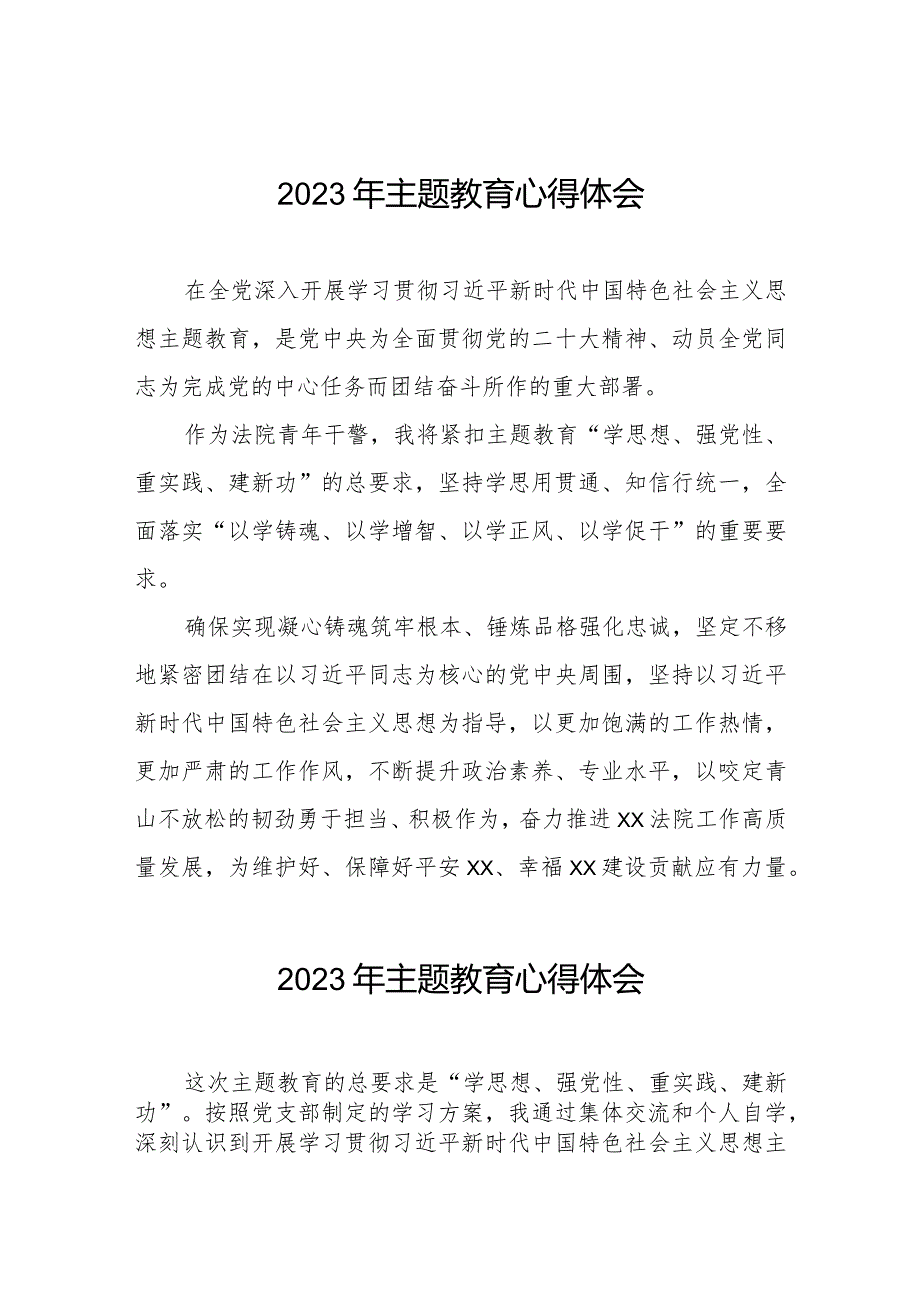 2023年主题教育心得体会
在全党深入开展学习贯彻习近平新时代中国特色社会主义思
想主题教育，是党中央为全面贯彻党的二十大精神、动员全党同
志为完成党的中心任务而团结奋斗所作的重大部署。
作为法院青年干警，我将紧扣主题教育“学思想、强党性、
重实践、建新功”的总要求，坚持学思用贯通、知信行统一，全
面落实“以学铸魂、以学增智、以学正风、以学促干”的重要要
求。
确保实现凝心铸魂筑牢根本、锤炼品格强化忠诚，坚定不移
地紧密团结在以习近平同志为核心的党中央周围，坚持以习近平
新时代中国特色社会主义思想为指导，以更加饱满的工作热情，
更加严肃的工作作风，不断提升政治素养、专业水平，以咬定青
山不放松的韧劲勇于担当、积极作为，奋力推进XX法院工作高质
量发展，为维护好、保障好平安XX、幸福XX建设贡献应有力量。
2023年主题教育心得体会
这次主题教育的总要求是“学思想、强党性、重实践、建新
功”。按照党支部制定的学习方案，我通过集体交流和个人自学，
深刻认识到开展学习贯彻习近平新时代中国特色社会主义思想主